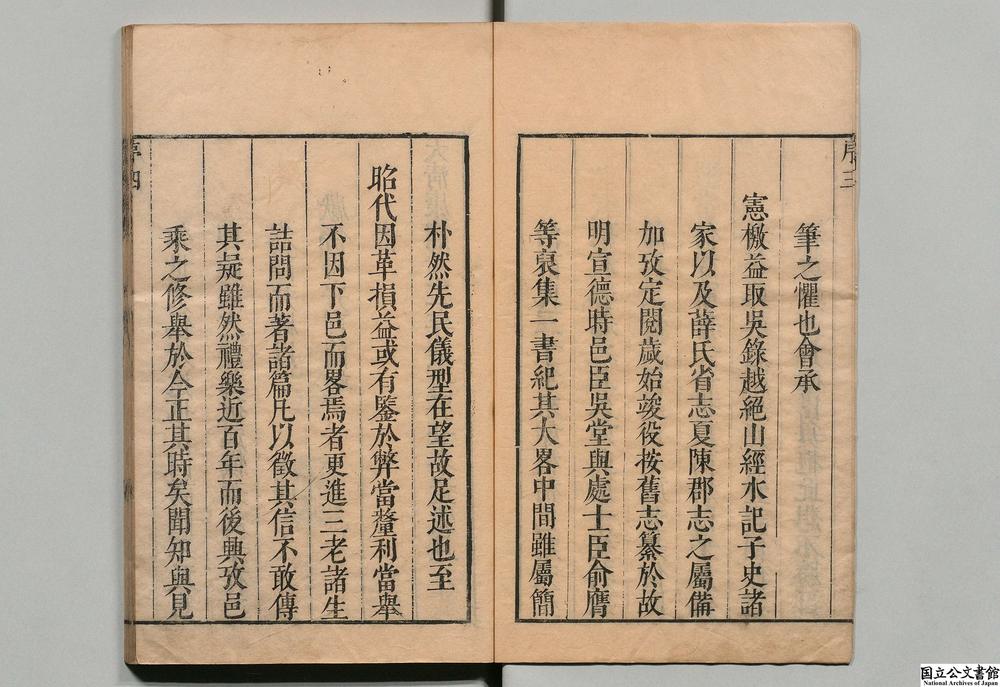 序三
筆之懼也會承
憲檄益取吳錄越絕山經水記子史諸
家以及薛氏省志夏陳郡志之屬備
加攷定閱歲始竣役按舊志纂於故
明宣德時邑臣吳堂與處士臣俞膺
等裒集二書紀其大畧中間雖屬簡
朴然先民儀型在望故足述也至
昭代因革損益或有鑒於弊當釐利當舉
不因下邑而畧焉者更進三老諸生
詰問而著諸篇凡以徵其信不敢傳
其疑雖然禮樂近百年而後興攷邑
乘之修舉於今正其時矣聞知與見
序四
国立公文書館
National Archives of Japan